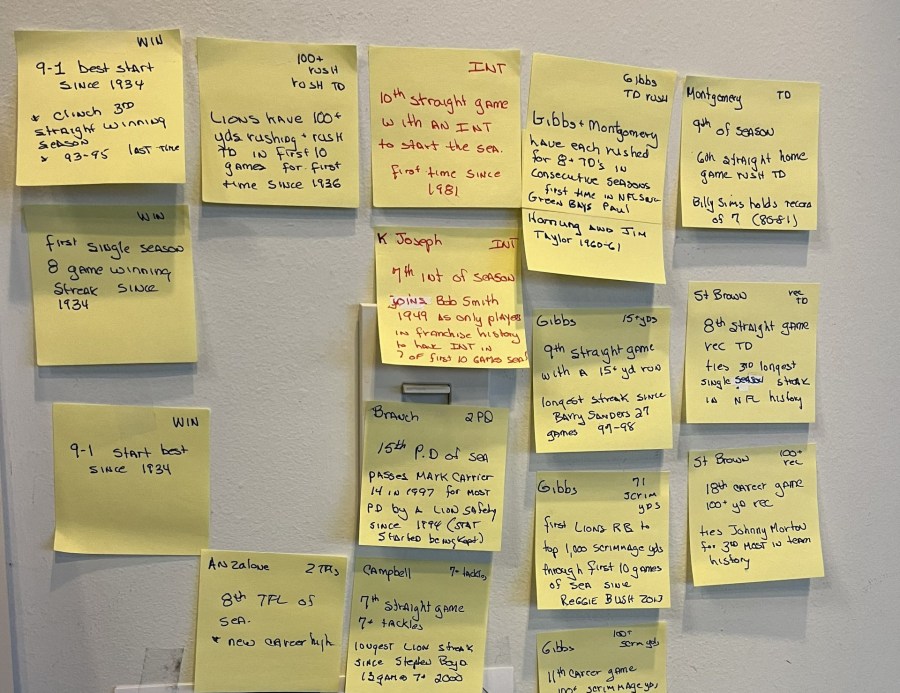 WIN
9-1 best start
since 1934
* clinch 3RD
straight winning
season
* 93-95 last time
100+
rush
rush TD
Lions have 100+
yds rushing + rush
TD in first 10
games for first
time since 1936
INT
10th straight game
with an INT
to start the sea.
first time since
1981
Gibbs
TD rush
Gibbs + Montgomery
have each rushed
for 8+ TD's in
consecutive seasons
first time in NFL since
Green Bays Paul
Hornung and Jim
Taylor 1960-61
Montgomery TD
9th of season
6th straight home
game rush TD
Billy Sims holds record
of 7 (80-81)
WIN
first single season
8 game winning
streak since
1934
K Joseph INT
7th INT of season
joins Bob Smith
1949 as only players
in franchise history
to have INT in
7 of first 10 games sea
Gibbs 15+yds
9th straight game
with a 15+ yd run
longest streak since
Barry Sanders 27
games 97-98
St Brown rec
TD
8th straight game
rec TD
ties 3RD longest
single season streak
in NFL history
WIN
9-1 start best
since 1934
Branch 2 PD
15th P.D of sea
passes Mark Carrier
14 in 1997 for most
PD by a Lion safety
since 1994 (stat
started being kept)
Gibbs 71
scrim
yds
first Lions RB to
top 1,000 scrimmage yds
through first 10 games
of sea since
Reggie Bush 2013
St Brown 100+
rec
18th career game
100+ yd rec
ties Johnny Morton
for 3RD most in team
history
Anzalone 2 TFLs
8th TFL of
sea.
* new career high
Campbell 7+ tackles
7th straight game
7+ tackles
longest Lion streak
since Stephen Boyd
13 games 7+ 2000
Gibbs 100+
scrim yds
11th career game
100+ scrimmage yds,